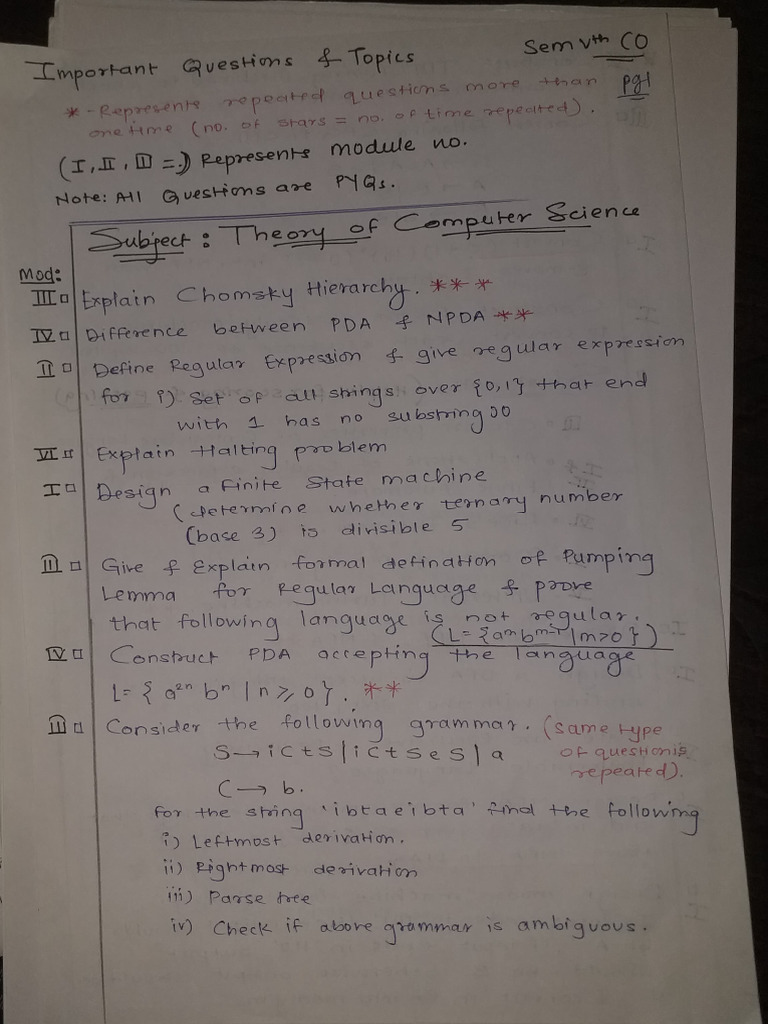 Important Questions & Topics
Sem Vth CO
pg1
* - Represents repeated questions more than
one time (no. of stars = no. of time repeated).
(I, II, III =:) Represents module no.
Note: All Questions are PYQs.
Subject: Theory of Computer Science
Mod:
III □ Explain Chomsky Hierarchy. ***
IV □ Difference between PDA & NPDA **
II □ Define Regular Expression & give regular expression
for i) Set of all strings over {0,1} that end
with 1 has no substring 00
VI □ Explain Halting problem
I □ Design a Finite State machine
(determine whether ternary number
(base 3) is divisible 5
II □ Give & Explain formal defination of Pumping
Lemma for Regular Language & prove
that following language is not regular.
(L = {aᵐ bᵐ⁻¹ | m>0})
IV □ Construct PDA accepting the language
L = { a²ⁿ bⁿ | n ⩾ 0}. **
III □ Consider the following grammar. (same type
S → iCtS | iCtSeS | a of question is
C → b. repeated).
for the string 'ibtaeibta' find the following
i) Leftmost derivation.
ii) Rightmost derivation
iii) Parse tree
iv) Check if above grammar is ambiguous.